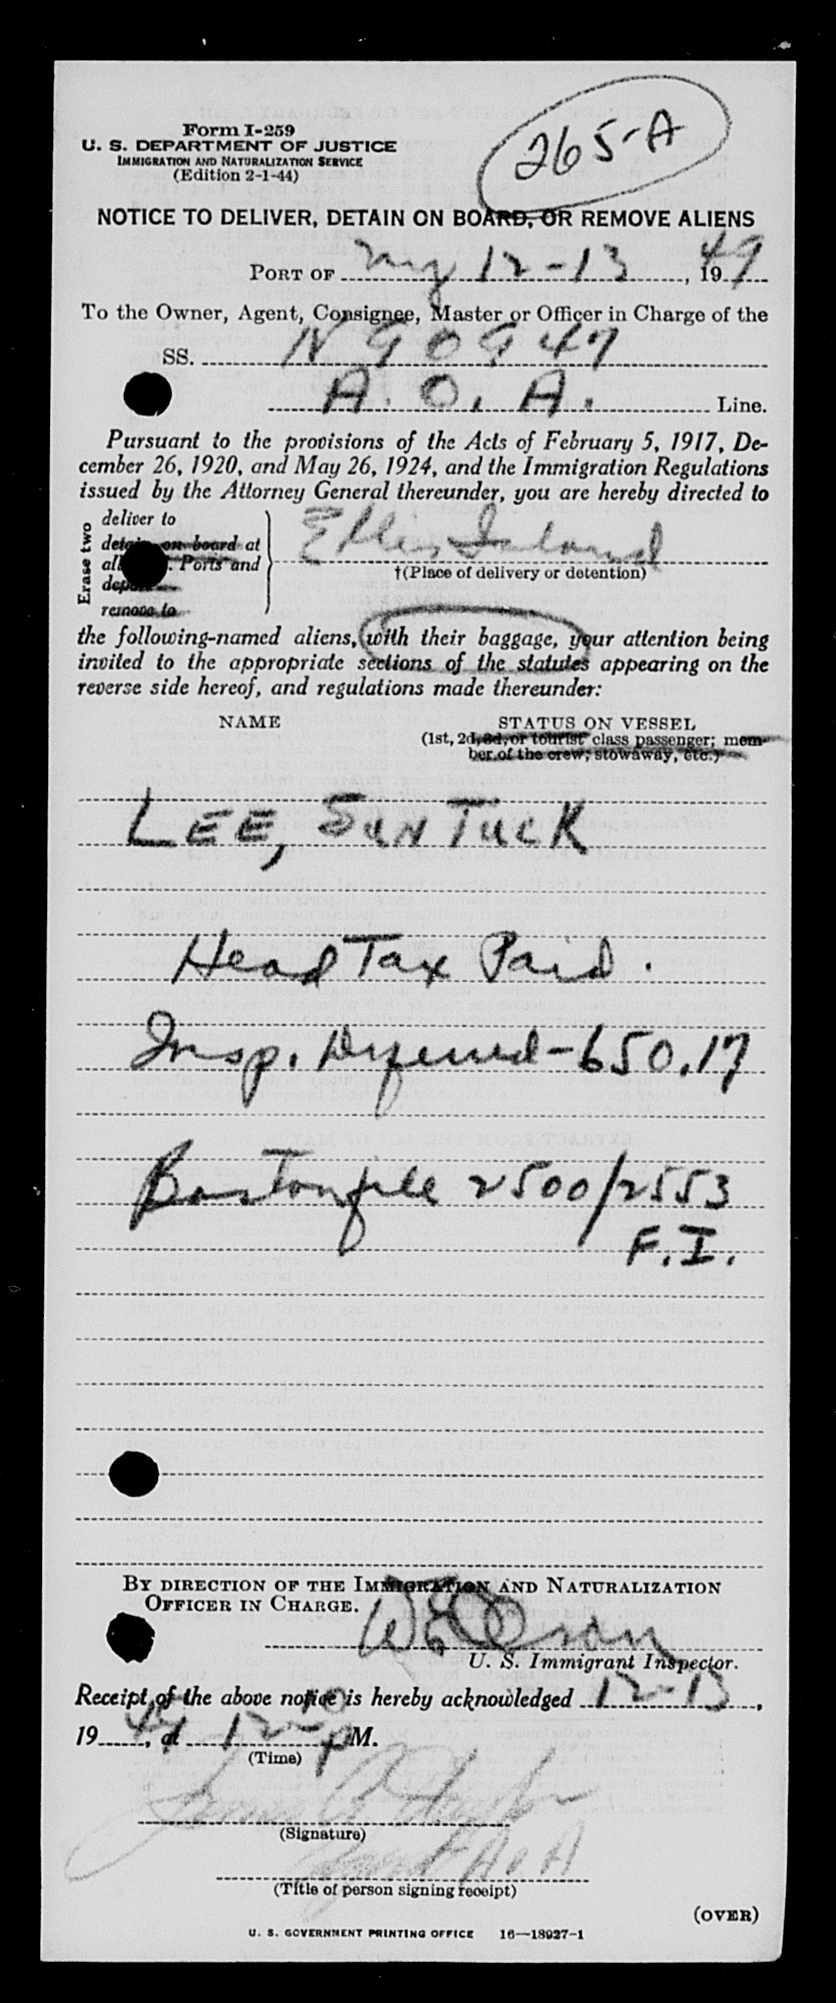 265-A
Form I-259
U. S. DEPARTMENT OF JUSTICE
IMMIGRATION AND NATURALIZATION SERVICE
(Edition 2-1-44)
NOTICE TO DELIVER, DETAIN ON BOARD, OR REMOVE ALIENS
PORT OF ny 12-13, 1949
To the Owner, Agent, Consignee, Master or Officer in Charge of the
SS. N90947
A.O.A. Line.
Pursuant to the provisions of the Acts of February 5, 1917, De-
cember 26, 1920, and May 26, 1924, and the Immigration Regulations
issued by the Attorney General thereunder, you are hereby directed to
Erase two
deliver to
detain on board at
Ports and
remove to
Ellis Island
†(Place of delivery or detention)
the following-named aliens, with their baggage, your attention being
invited to the appropriate sections of the statutes appearing on the
reverse side hereof, and regulations made thereunder:
NAME STATUS ON VESSEL
(1st, 2d, 3d, or tourist class passenger; mem-
ber of the crew; stowaway, etc.)
LEE, SUN TUCK
Head Tax Paid.
Insp. Deferred-650.17
Boston file 2500/2553
F.I.
BY DIRECTION OF THE IMMIGRATION AND NATURALIZATION
OFFICER IN CHARGE.
U. S. Immigrant Inspector.
Receipt of the above notice is hereby acknowledged 12-13,
1949, at 12-10 P M.
(Time)
James
(Signature)
Agent AOA
(Title of person signing receipt)
(OVER)
U. S. GOVERNMENT PRINTING OFFICE 16—18927-1